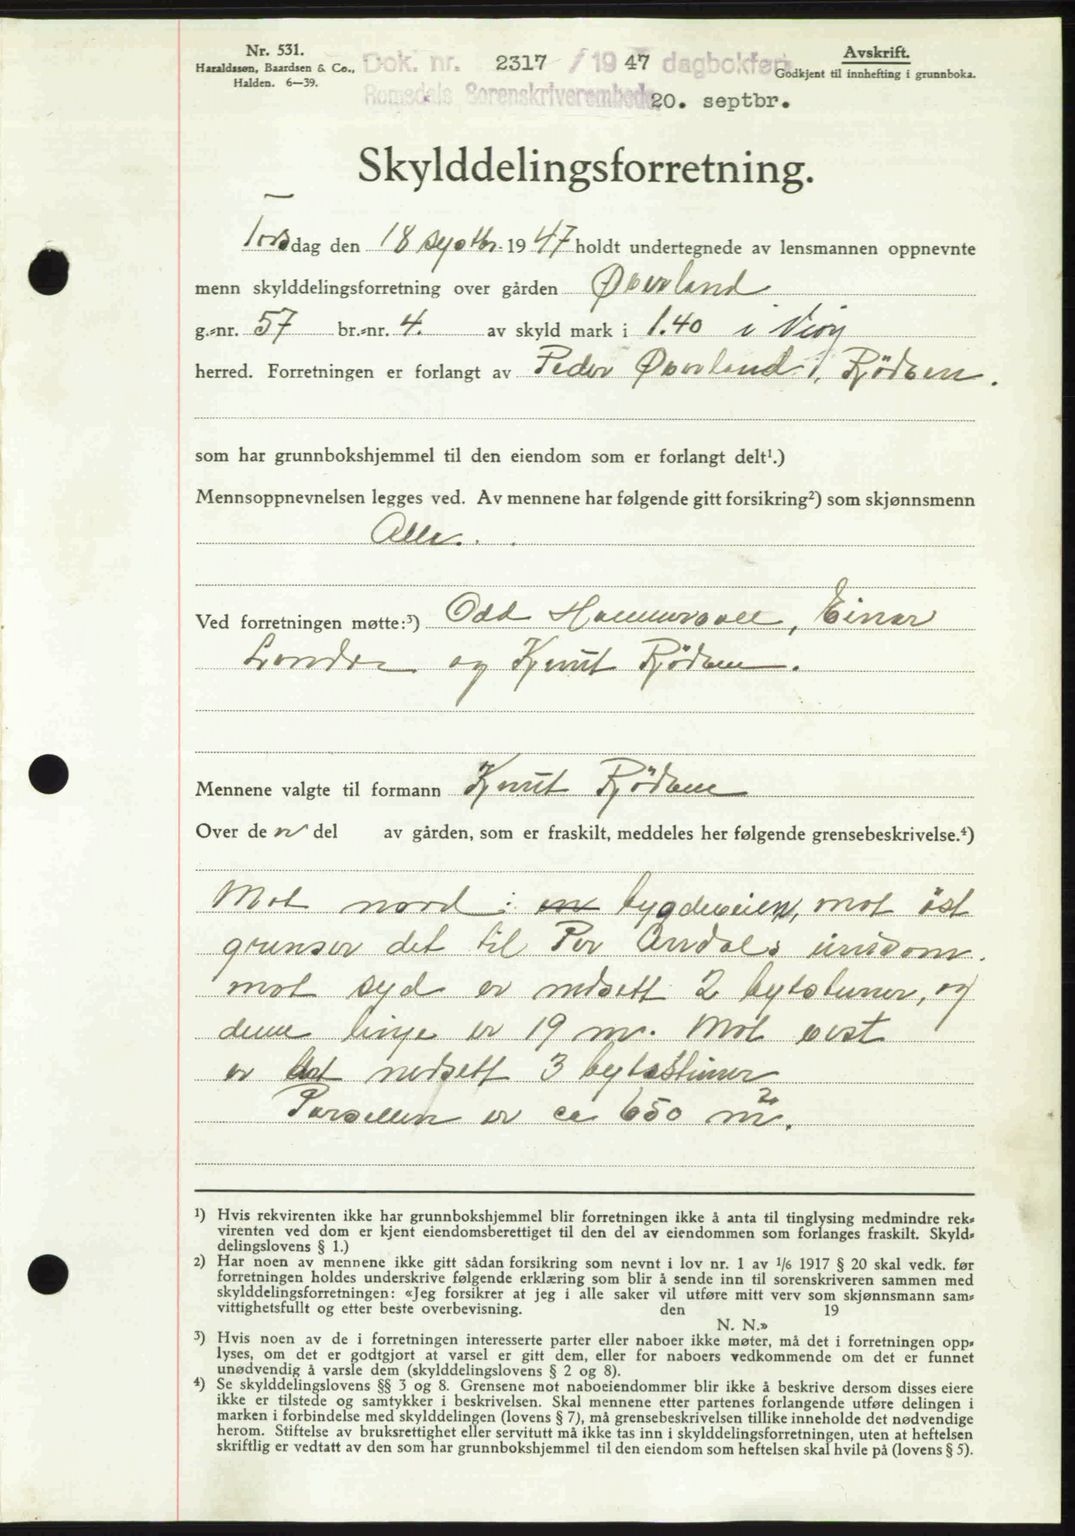 Nr. 531.
Haraldssøn, Baardsen & Co.,
Halden. 6—39.
Dok. nr. 2317 / 1947 dagbokført
Avskrift.
Godkjent til innhefting i grunnboka.
Romsdals Sorenskriverembede 20. septbr.
Skylddelingsforretning.
Torsdag den 18 septbr. 1947 holdt undertegnede av lensmannen oppnevnte
menn skylddelingsforretning over gården Øverland
g.-nr. 57 br.-nr. 4. av skyld mark i 1.40 i Veøy
herred. Forretningen er forlangt av Peder Øverland, Rødven.
som har grunnbokshjemmel til den eiendom som er forlangt delt¹.)
Mennsoppnevnelsen legges ved. Av mennene har følgende gitt forsikring²) som skjønnsmenn
Alle.
Ved forretningen møtte:³) Odd Hammervoll, Einar
og Knut Rødven.
Mennene valgte til formann Knut Rødven
Over de n del av gården, som er fraskilt, meddeles her følgende grensebeskrivelse.⁴)
Mot nord: en bygdeveien, mot öst
grenser det til Per eiendom.
mot syd er nedsett 2 bytesteiner, og
denne linje er 19 m. Mot vest
er det nedsett 3 bytessteiner
Parsellen er ca 650 m².
¹) Hvis rekvirenten ikke har grunnbokshjemmel blir forretningen ikke å anta til tinglysing medmindre rek-
virenten ved dom er kjent eiendomsberettiget til den del av eiendommen som forlanges fraskilt. Skyld-
delingslovens § 1.)
²) Har noen av mennene ikke gitt sådan forsikring som nevnt i lov nr. 1 av 1/6 1917 § 20 skal vedk. før
forretningen holdes underskrive følgende erklæring som blir å sende inn til sorenskriveren sammen med
skylddelingsforretningen: «Jeg forsikrer at jeg i alle saker vil utføre mitt verv som skjønnsmann sam-
vittighetsfullt og etter beste overbevisning. den 19
N. N.»
³) Hvis noen av de i forretningen interesserte parter eller naboer ikke møter, må det i forretningen opp-
lyses, om det er godtgjort at varsel er gitt dem, eller for naboers vedkommende om det er funnet
unødvendig å varsle dem (skylddelingslovens § 2 og 8).
⁴) Se skylddelingslovens §§ 3 og 8. Grensene mot naboeiendommer blir ikke å beskrive dersom disses eiere
ikke er tilstede og samtykker i beskrivelsen. Skal mennene etter partenes forlangende utføre delingen i
marken i forbindelse med skylddelingen (lovens § 7), må grensebeskrivelsen tillike inneholde det nødvendige
herom. Stiftelse av bruksrettighet eller servitutt må ikke tas inn i skylddelingsforretningen, uten at heftelsen
skriftlig er vedtatt av den som har grunnbokshjemmel til den eiendom som heftelsen skal hvile på (lovens § 5).